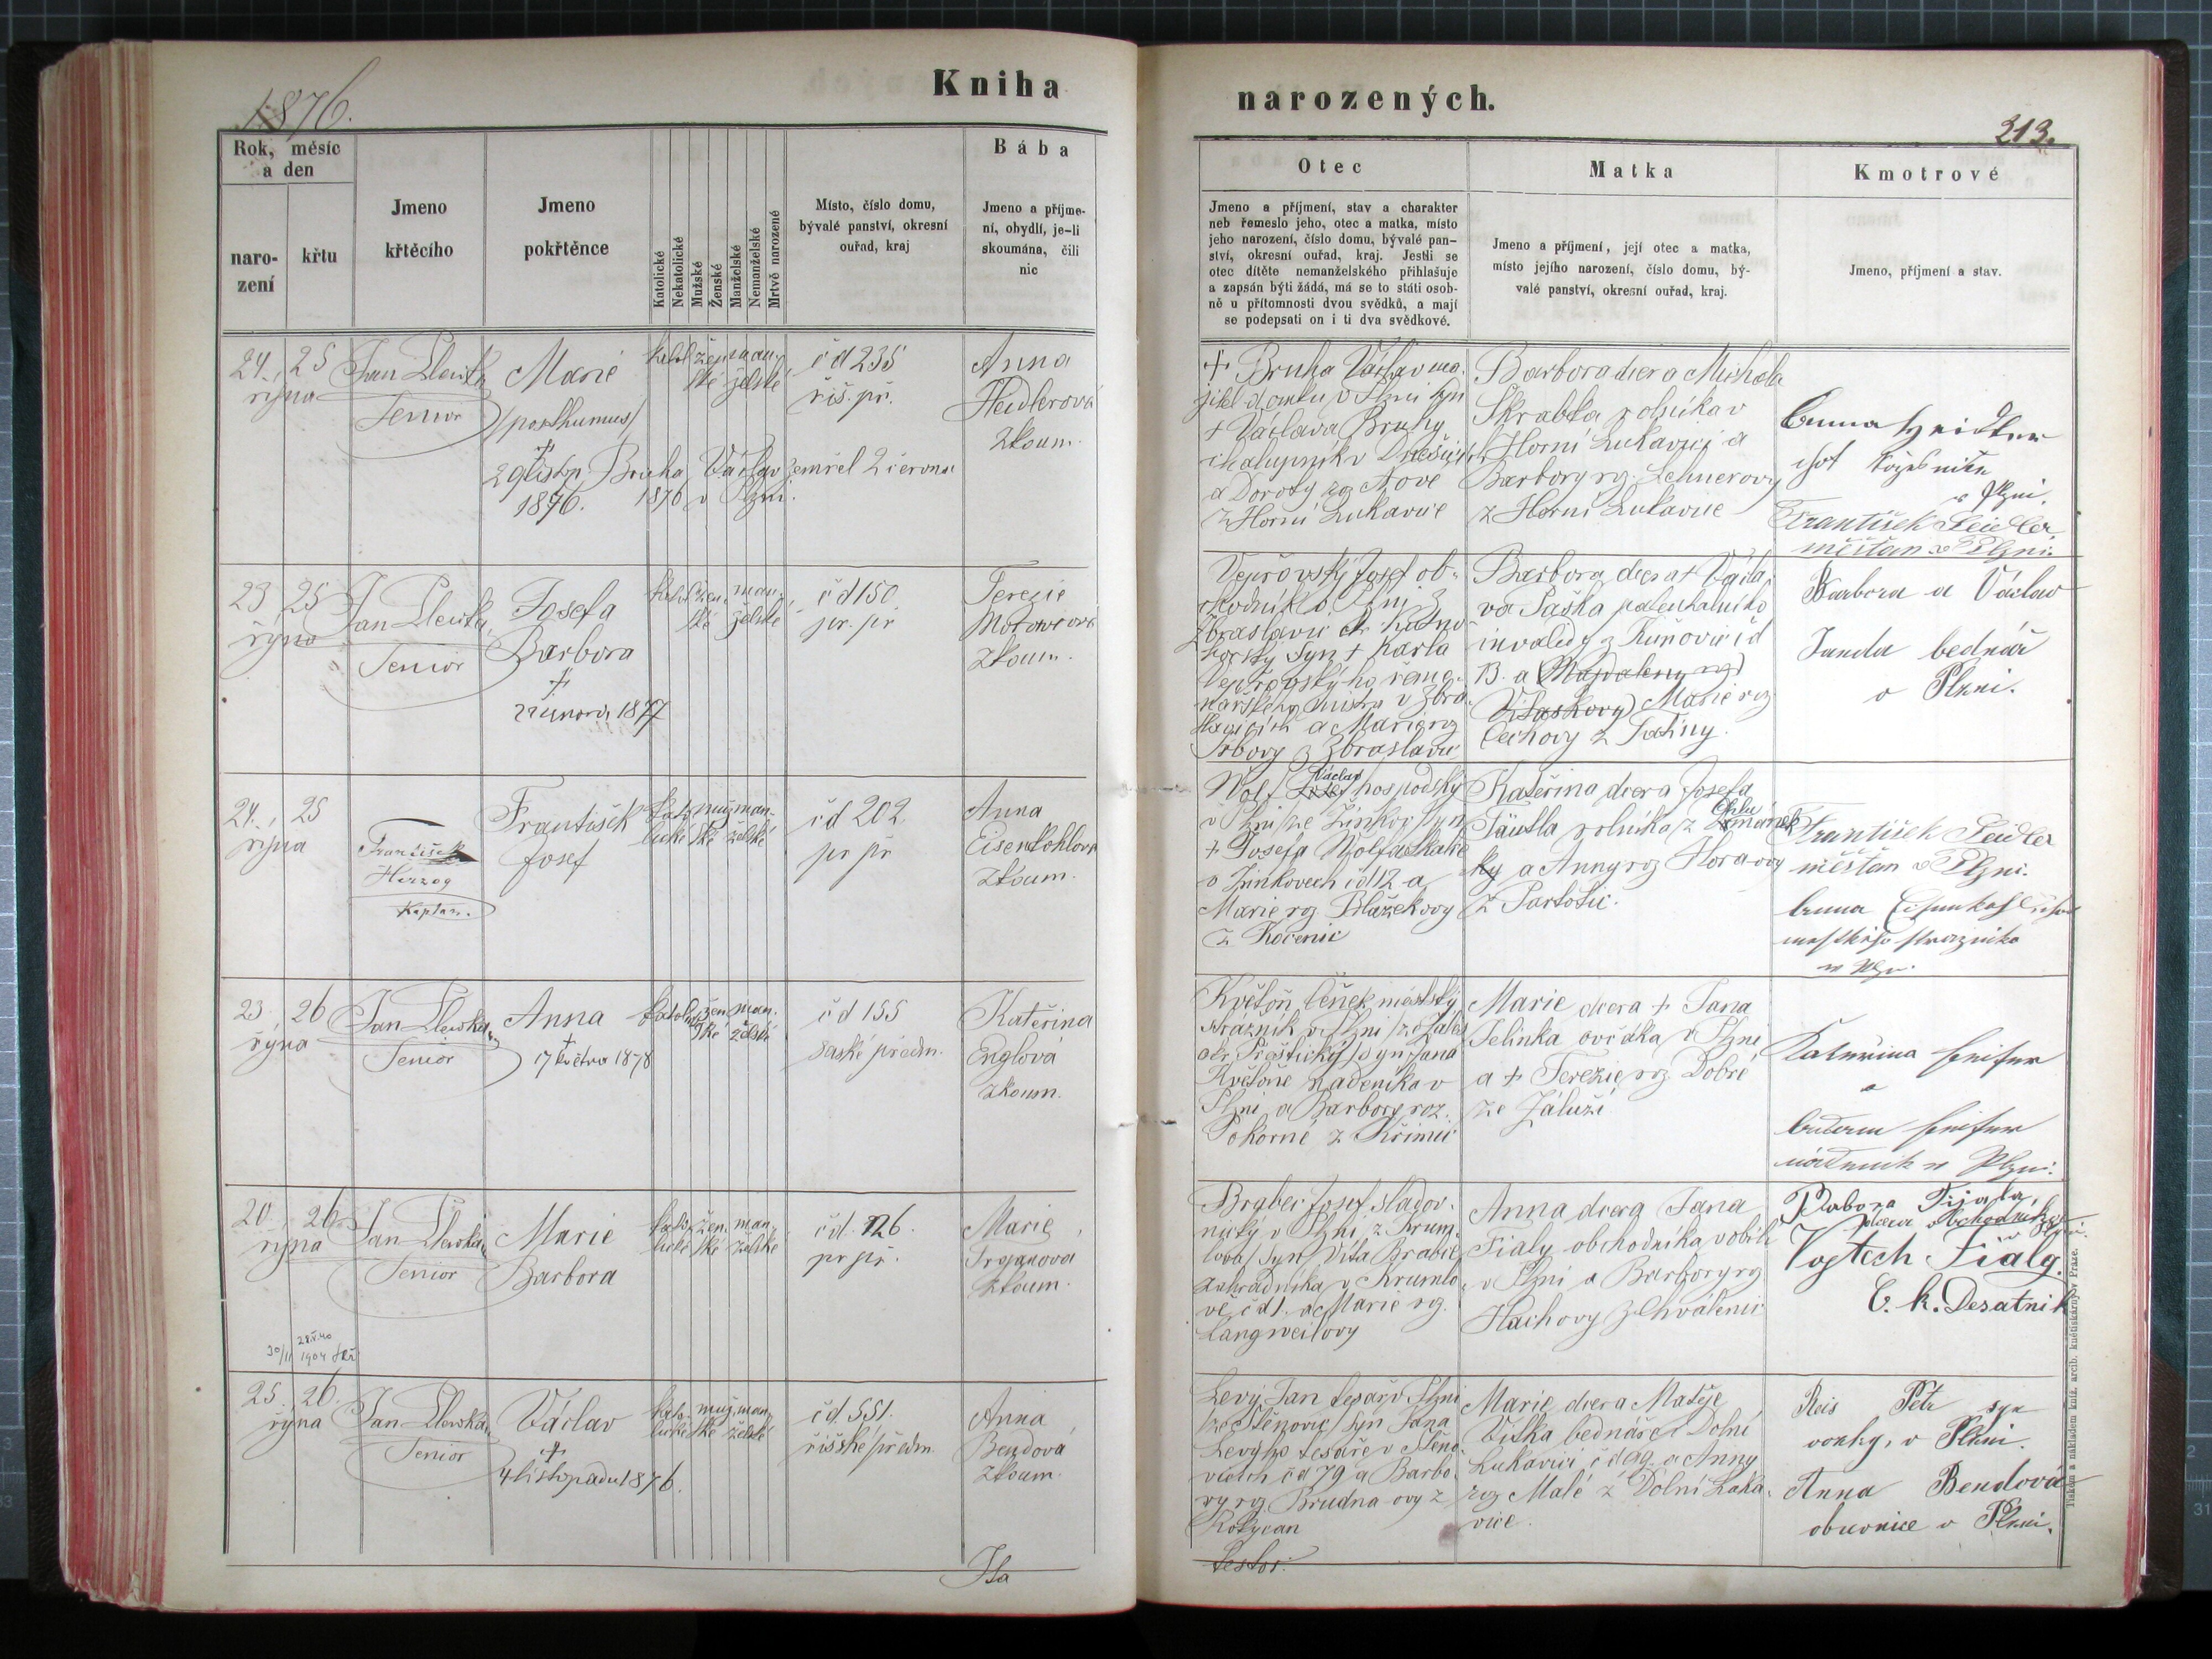 Kniha
narozených.
1876.
213.
Rok, měsíc
a den
naro-
zení
křtu
Jmeno
křtěcího
Jmeno
pokřtěnce
Katolické
Nekatolické
Mužské
Ženské
Manželské
Nemanželské
Mrtvě narozené
Místo, číslo domu,
bývalé panství, okresní
ouřad, kraj
Bába
Jmeno a příjme-
ní, obydlí, je-li
skoumána, čili
nic
Otec
Jmeno a příjmení, stav a charakter
neb řemeslo jeho, otec a matka, místo
jeho narození, číslo domu, bývalé pan-
ství, okresní ouřad, kraj. Jestli se
otec dítěte nemanželského přihlašuje
a zapsán býti žádá, má se to státi osob-
ně u přítomnosti dvou svědků, a mají
se podepsati on i ti dva svědkové.
Matka
Jmeno a příjmení, její otec a matka,
místo jejího narození, číslo domu, bý-
valé panství, okresní ouřad, kraj.
Kmotrové
Jmeno, příjmení a stav.
24. 25
října
Jan
Senior
Marie
/posthumus/
†
29 listop.
1876.
Bruha Václav zemřel 2 června
1876 v Plzni.
katol žen man
ské želské
čd 235
říš. př.
Anna
Heidlerová
Zkoum.
+ Bruha Václav ma-
jitel domku v Plzni syn
+ Václava Bruhy
chalupník v
a Doroty rz Nové
z Horní Lukavice
Barbora dcera Michala
Skrabka rolníka v
Horní Lukavici a
Barbory rz. Lehnerovy
z Horní Lukavice
Anna Heidler
v Plzni.
František Heidler
měšťan v Plzni.
23 25
října
Jan
Senior
Josefa
Barbora
†
února 1877
katol žen man
ské želské
čd 150
pr. př
Terezie
Zkoum.
Vepřovský Josef ob-
chodník v Plzni z
Zbraslavic
horský syn + Karla
Vepřovskýho
v Zbra
slavicích a Marie rz
z Zbraslavic
Barbora dcera + Václa
va Paška
invalidy z čd
13. a Magdaleny rz
Marie rz
Čechovy z
Barbora a Václav
Janda bednář
v Plzni.
24. 25
října
František
Herzog
Kaplan.
František
Josef
kato muž man-
lické ské želské
čd 202.
pr př
Anna
Eisenkohlová
Zkoum.
Wolf Josef hospodský
Václav
v Plzni /ze Žinkov/ syn
+ Josefa Wolfa
v Žinkovech čd 12 a
Marie rz. Blažekovy
z Kočenic
Kateřina dcera Josefa
Täutla rolníka z
a Anny rz Horovy
z Partotic.
František Heidler
měšťan v Plzni.
Anna
v Plzni
23 26
října
Jan
Senior
Anna
†
17 května 1878
katol žen man.
ské želské
čd 155
saské předm.
Kateřina
Englová
Zkoum.
Květoň Čeněk městský
strážník v Plzni /ze Zálu
okr. Přeštický/ syn Jana
Květoně nádeníka v
Plzni a Barbory roz.
Pokorné z Křimic
Marie dcera + Jana
Jelínka ovčáka v Plzni
a + Terezie rz Dobré
ze Záluží
Kateřina
a
v Plzni.
20. 26
října
Jan
Senior
Marie
Barbora
kato- žen. man-
lické ské želské
čd. 126.
pr př.
Marie
Trojanová
Zkoum.
Brabec Josef sladov-
nický v Plzni z Krum-
lova/ syn Víta Brabce
zahradníka v Krumlo-
vě čd 1. a Marie rz.
Langweilovy
Anna dcera Jana
Fialy obchodníka v obilí
v Plzni a Barbory rz
Hachovy z Chválenic
Barbora Fijala,
dcera obchodníka
Vojtech Fialg.
C. k. Desatnik
28.V.40
30/11 1904
25 26
října
Jan
Senior
Václav
†
4 listopadu 1876.
kato- muž man
lické ské želské
čd. 551.
říšské předm.
Anna
Bendová
Zkoum.
Levý Jan tesař v Plzni
/ze Štěnovic/ syn Jana
Levýho tesaře v Štěno-
vicích čd 79 a Barbo-
ry rz. z
Rokycan
Marie dcera Matěje
Vítka bednáře v Dolní
Lukavici čd 99 a Anny
rz Malé z Dolní Luka-
vice.
Reis Petr syn
v Plzni.
Anna Bendová
obuvnice v Plzni.